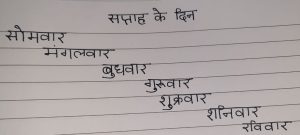 सप्ताह के दिन
सोमवार
मंगलवार
बुधवार
गुरूवार
शुक्रवार
शनिवार
रविवार